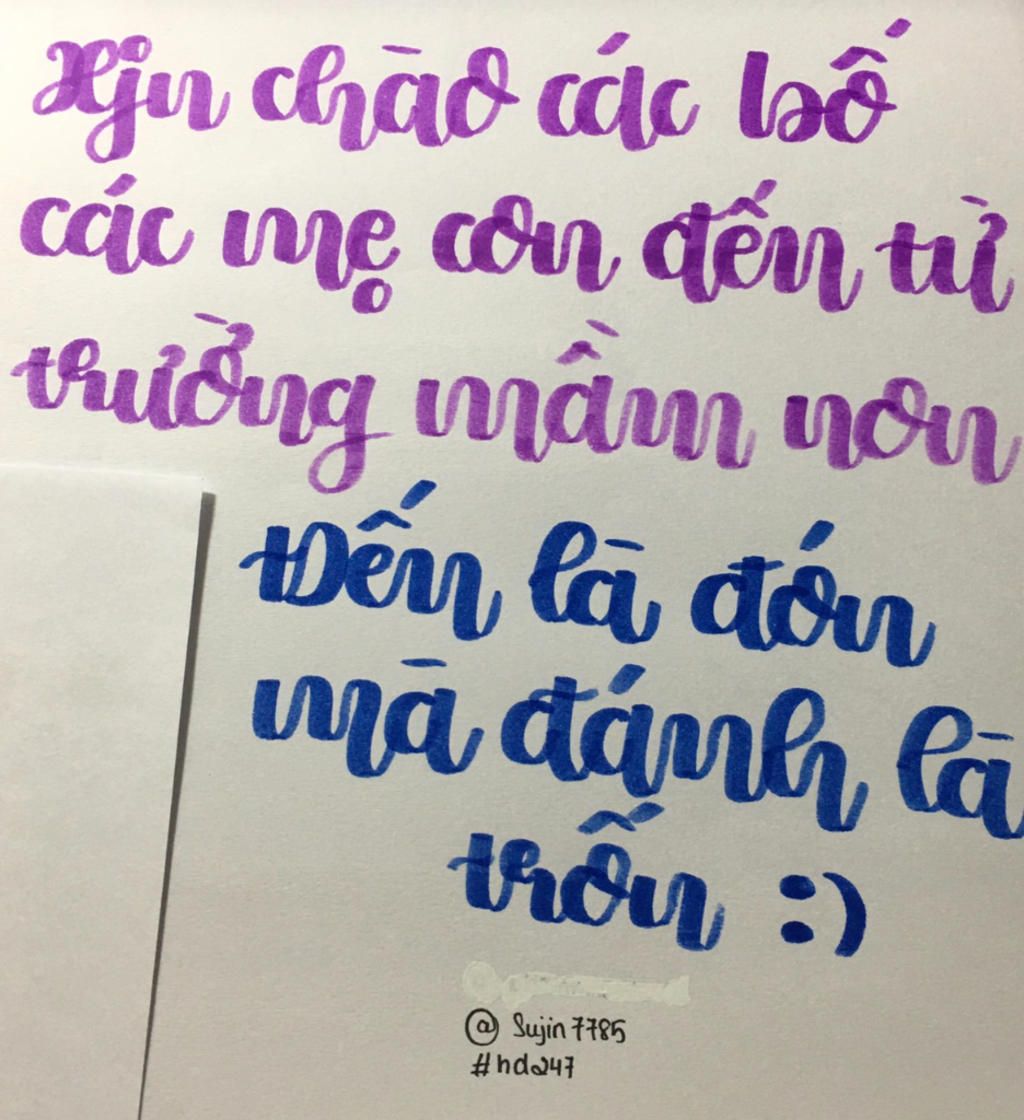 Xin chào các bố
các mẹ con đến từ
trường mầm non
Đến là đón
mà đánh là
trốn :)
@ Sujin7785
#hda247